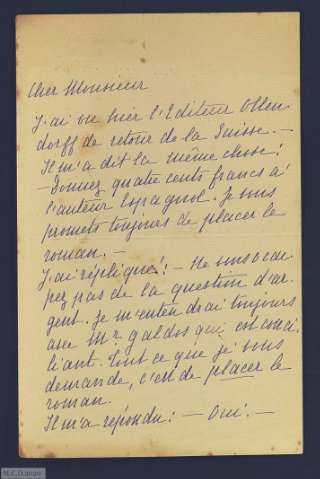 Cher Monsieur
J'ai vu hier l'Editeur Ollen
dorff de retour de la Suisse. —
Il m'a dit la même chose:
— Donnez quatre cents francs a'
l'auteur Espagnol. Je vous
promets toujours de placer le
roman. —
J'ai répliqué: — Ne vous occu
pez pas de la question d'ar
gent. Je m'entendrai toujours
avec Mr galdos qui est conci
liant. Tout ce que je vous
demande, c'est de placer le
roman.
Il m'a répondu: — Oui. —